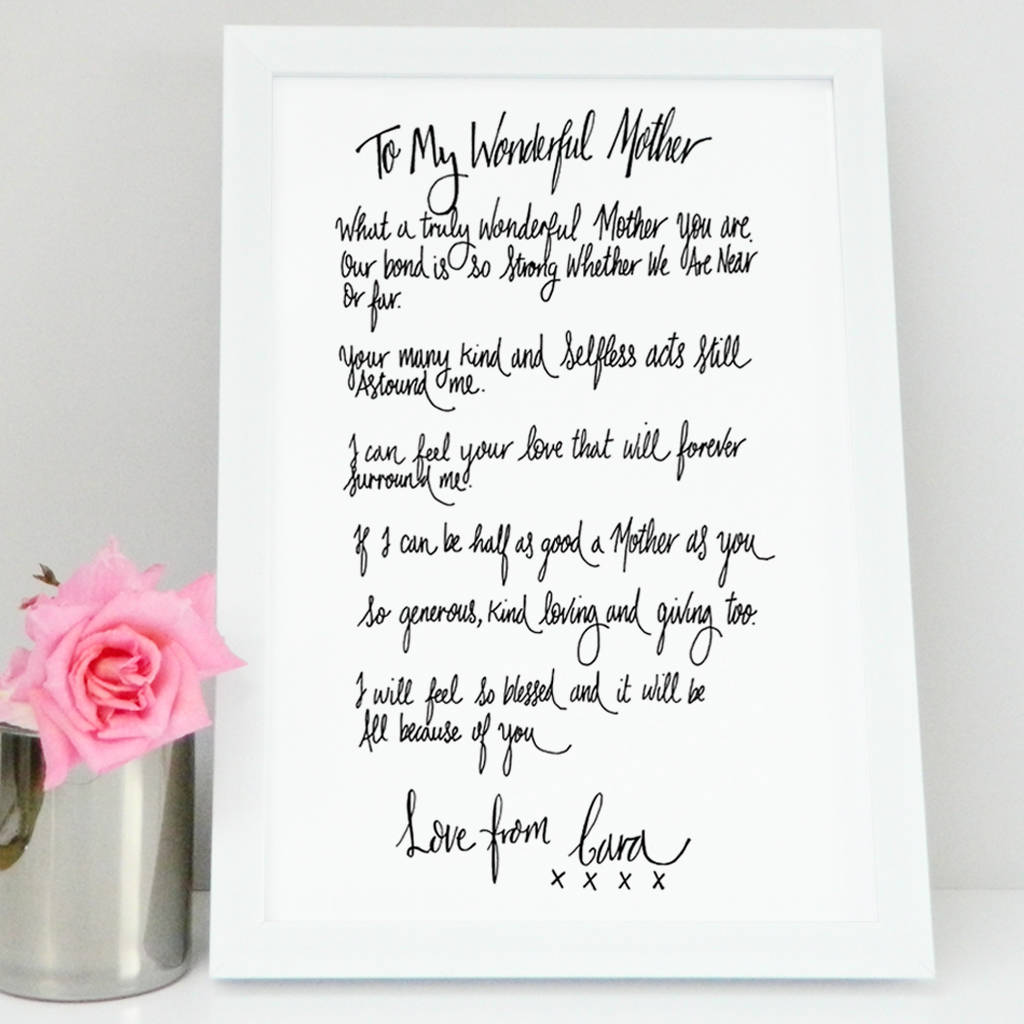 To My Wonderful Mother
What a truly Wonderful Mother You are.
Our bond is so Strong Whether We Are Near
Or far.
Your many kind and Selfless acts Still
Astound me.
I can feel your love that will forever
Surround me.
If I can be half as good a Mother as you
So generous, kind loving and giving too.
I will feel so blessed and it will be
All because of you
Love from Cara
x x x x